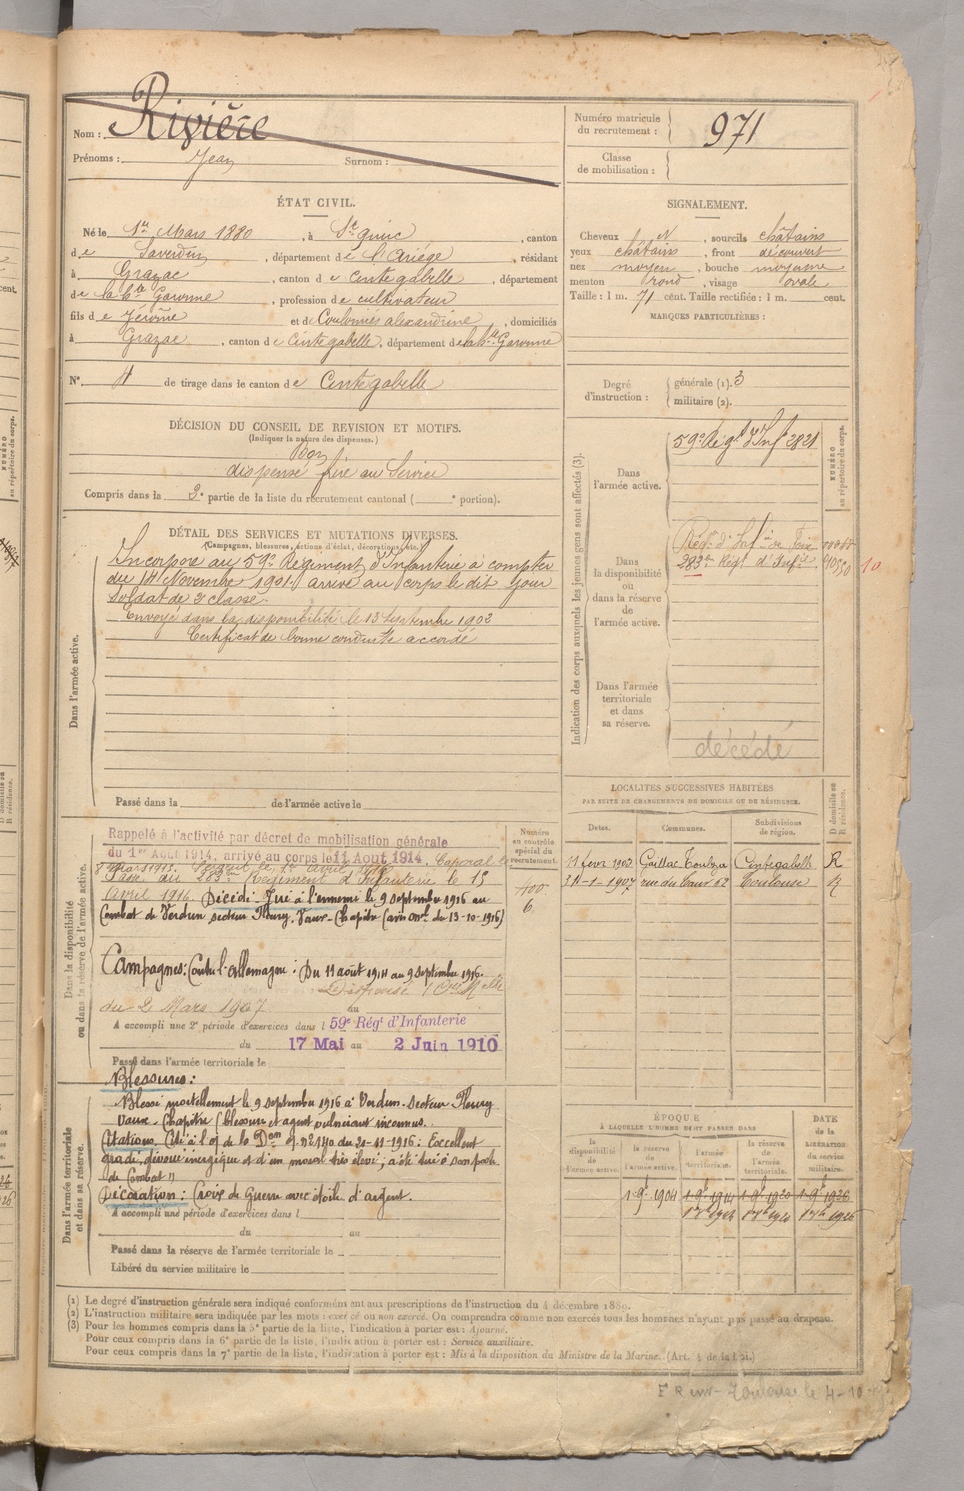 Nom : Rivière
Prénoms : Jean Surnom :
Numéro matricule du recrutement : 971
Classe de mobilisation :
ÉTAT CIVIL.
Né le 1er Mars 1880, à Ste quirc, canton
de Saverdun, département de l'Ariége, résidant
à Grazac, canton de Cintegabelle, département
de la Hte Garonne, profession de cultivateur
fils de Jérôme et de Coulomiés alexandrine, domiciliés
à Grazac, canton de Cintegabelle, département de la Hte Garonne
N° 4 de tirage dans le canton de Cintegabelle
SIGNALEMENT.
Cheveux N, sourcils châtains
yeux châtains, front découvert
nez moyen, bouche moyenne
menton rond, visage ovale
Taille : 1 m. 71 cent. Taille rectifiée : 1 m. cent.
MARQUES PARTICULIÈRES :
Degré d'instruction : générale (1). 3
militaire (2).
DÉCISION DU CONSEIL DE REVISION ET MOTIFS.
(Indiquer la nature des dispenses.)
Bon
dispensé frère au Service
Compris dans la 2e partie de la liste du recrutement cantonal ( e portion).
DÉTAIL DES SERVICES ET MUTATIONS DIVERSES.
(Campagnes, blessures, actions d'éclat, décorations, etc.
Dans l'armée active.
Incorporé au 59e Régiment d'Infanterie à compter
du 14 Novembre 1901, arrivé au corps le dit jour
Soldat de 2e classe.
Envoyé dans la disponibilité le 13 Septembre 1902
Certificat de bonne conduite accordé
Passé dans la de l'armée active le
Indication des corps auxquels les jeunes gens sont affectés (3).
NUMÉRO au répertoire du corps.
Dans l'armée active.
59e Régt d'Inf 2821
Dans la disponibilité ou dans la réserve de l'armée active.
Régt d'Infrie Foix
283e Régt d'Infie
10
Dans l'armée territoriale et dans sa réserve.
décédé
LOCALITÉS SUCCESSIVES HABITÉES
PAR SUITE DE CHANGEMENTS DE DOMICILE OU DE RÉSIDENCE.
Dates. Communes. Subdivisions de région. D domicile ou R résidence.
11 fevr 1903 Toulouse Cintegabelle R
31-1-1907 rue du Taur 62 Toulouse R
Dans la disponibilité ou dans la réserve de l'armée active.
Numéro au contrôle spécial du recrutement.
100
6
Rappelé à l'activité par décret de mobilisation générale
du 1er Août 1914, arrivé au corps le 11 Aout 1914, Caporal le
8 Mars 1915. Sergent le 1er avril 1916
Passé au 283eme Régiment d'Infanterie le 15
Avril 1916. Décédé. Tué à l'ennemi le 9 septembre 1916 au
Combat de Verdun secteur Fleury. Vaux-Chapitre (avis Mel du 13-10-1916)
Campagnes : Contre l'Allemagne : Du 11 août 1914 au 9 septembre 1916.
Dispensé
du 2 Mars 1907
au
A accompli une 2e période d'exercices dans l 59e Régt d'Infanterie
du 17 Mai au 2 Juin 1910
Passé dans l'armée territoriale le
Dans l'armée territoriale et dans sa réserve.
Blessures :
Blessé mortellement le 9 septembre 1916 à Verdun. Secteur Fleury
Vaux-Chapitre (blessure et agent vulnérant inconnus.
Citations. Cité à l'O. de la Don of. no 140 du 20-11-1916 : Excellent
gradé, dévoué énergique et d'un moral très élevé ; a été tué à son poste
de Combat "
Décoration : Croix de Guerre avec étoile d'argent.
A accompli une période d'exercices dans l
du au
Passé dans la réserve de l'armée territoriale le
Libéré du service militaire le
ÉPOQUE
À LAQUELLE L'HOMME DOIT PASSER DANS
DATE de la LIBÉRATION du service militaire.
la disponibilité de l'armée active. la réserve de l'armée active. l'armée territoriale. la réserve de l'armée territoriale.
1 9bre 1904 1 9bre 1914 1 9bre 1920 1 9bre 1926
(1) Le degré d'instruction générale sera indiqué conformément aux prescriptions de l'instruction du 4 décembre 1889.
(2) L'instruction militaire sera indiquée par les mots : exercé ou non exercé. On comprendra comme non exercés tous les hommes n'ayant pas passé au drapeau.
(3) Pour les hommes compris dans la 5e partie de la liste, l'indication à porter est : Ajourné.
Pour ceux compris dans la 6e partie de la liste, l'indication à porter est : Service auxiliaire.
Pour ceux compris dans la 7e partie de la liste, l'indication à porter est : Mis à la disposition du Ministre de la Marine. (Art. 4 de la loi.)
Toulouse le 4-10